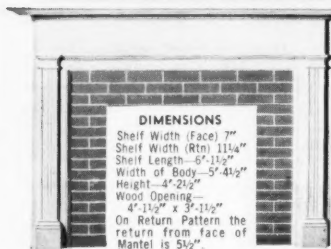 DIMENSIONS
Shelf Width (Face) 7"
Shelf Width (Rtn) 11¼"
Shelf Length—6'-1½"
Width of Body—5'-4½"
Height—4'-2½"
Wood Opening—
4'-1½" x 3'-1½"
On Return Pattern the
return from face of
Mantel is 5½".